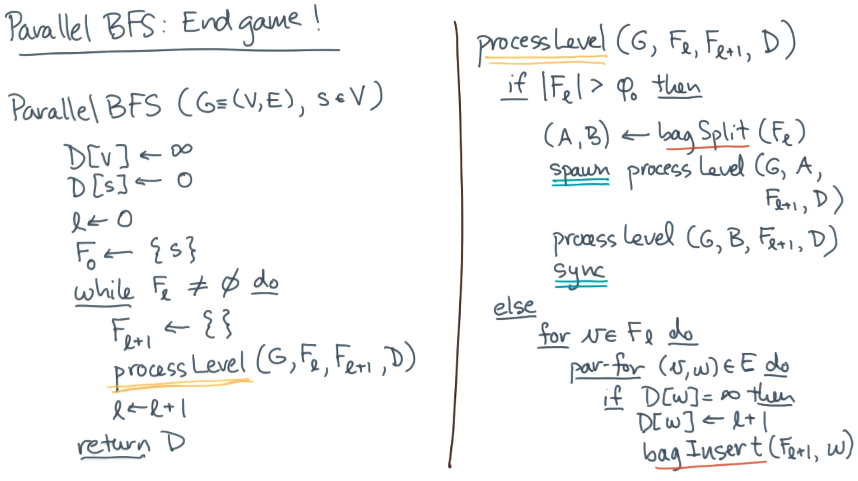 Parallel BFS: End game!
Parallel BFS (G≡(V,E), s∈V)
D[v] ← ∞
D[s] ← 0
l ← 0
F₀ ← {s}
while Fₗ ≠ ∅ do
Fₗ₊₁ ← {}
processLevel (G, Fₗ, Fₗ₊₁, D)
l ← l+1
return D
processLevel (G, Fₗ, Fₗ₊₁, D)
if |Fₗ| > φ₀ then
(A,B) ← bagSplit (Fₗ)
spawn processLevel (G, A,
Fₗ₊₁, D)
processLevel (G, B, Fₗ₊₁, D)
sync
else
for v ∈ Fₗ do
par-for (v,w) ∈ E do
if D[w] = ∞ then
D[w] ← l+1
bagInsert (Fₗ₊₁, w)